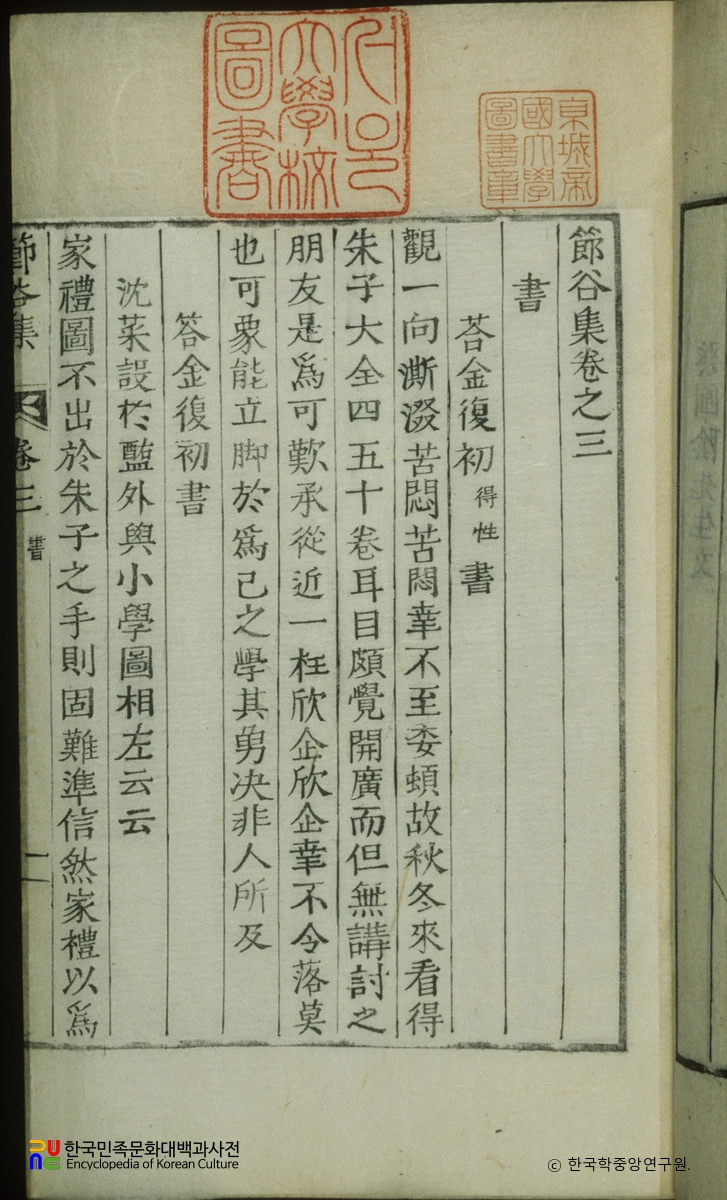 節谷集卷之三
書
荅金復初得性書
觀一向澌濲苦悶苦悶幸不至委頓故秋冬來看得
朱子大全四五十卷耳目頗覺開廣而但無講討之
朋友是爲可歎承從近一枉欣企欣企幸不令落莫
也可象能立脚於爲己之學其勇決非人所及
答金復初書
沈菜設於䀋外與小學圖相左云云
家禮圖不出於朱子之手則固難準信然家禮以爲
節谷集 卷三 書 一
東城帝
國大學
圖書章
大學校
圖書
한국민족문화대백과사전
Encyclopedia of Korean Culture
© 한국학중앙연구원.